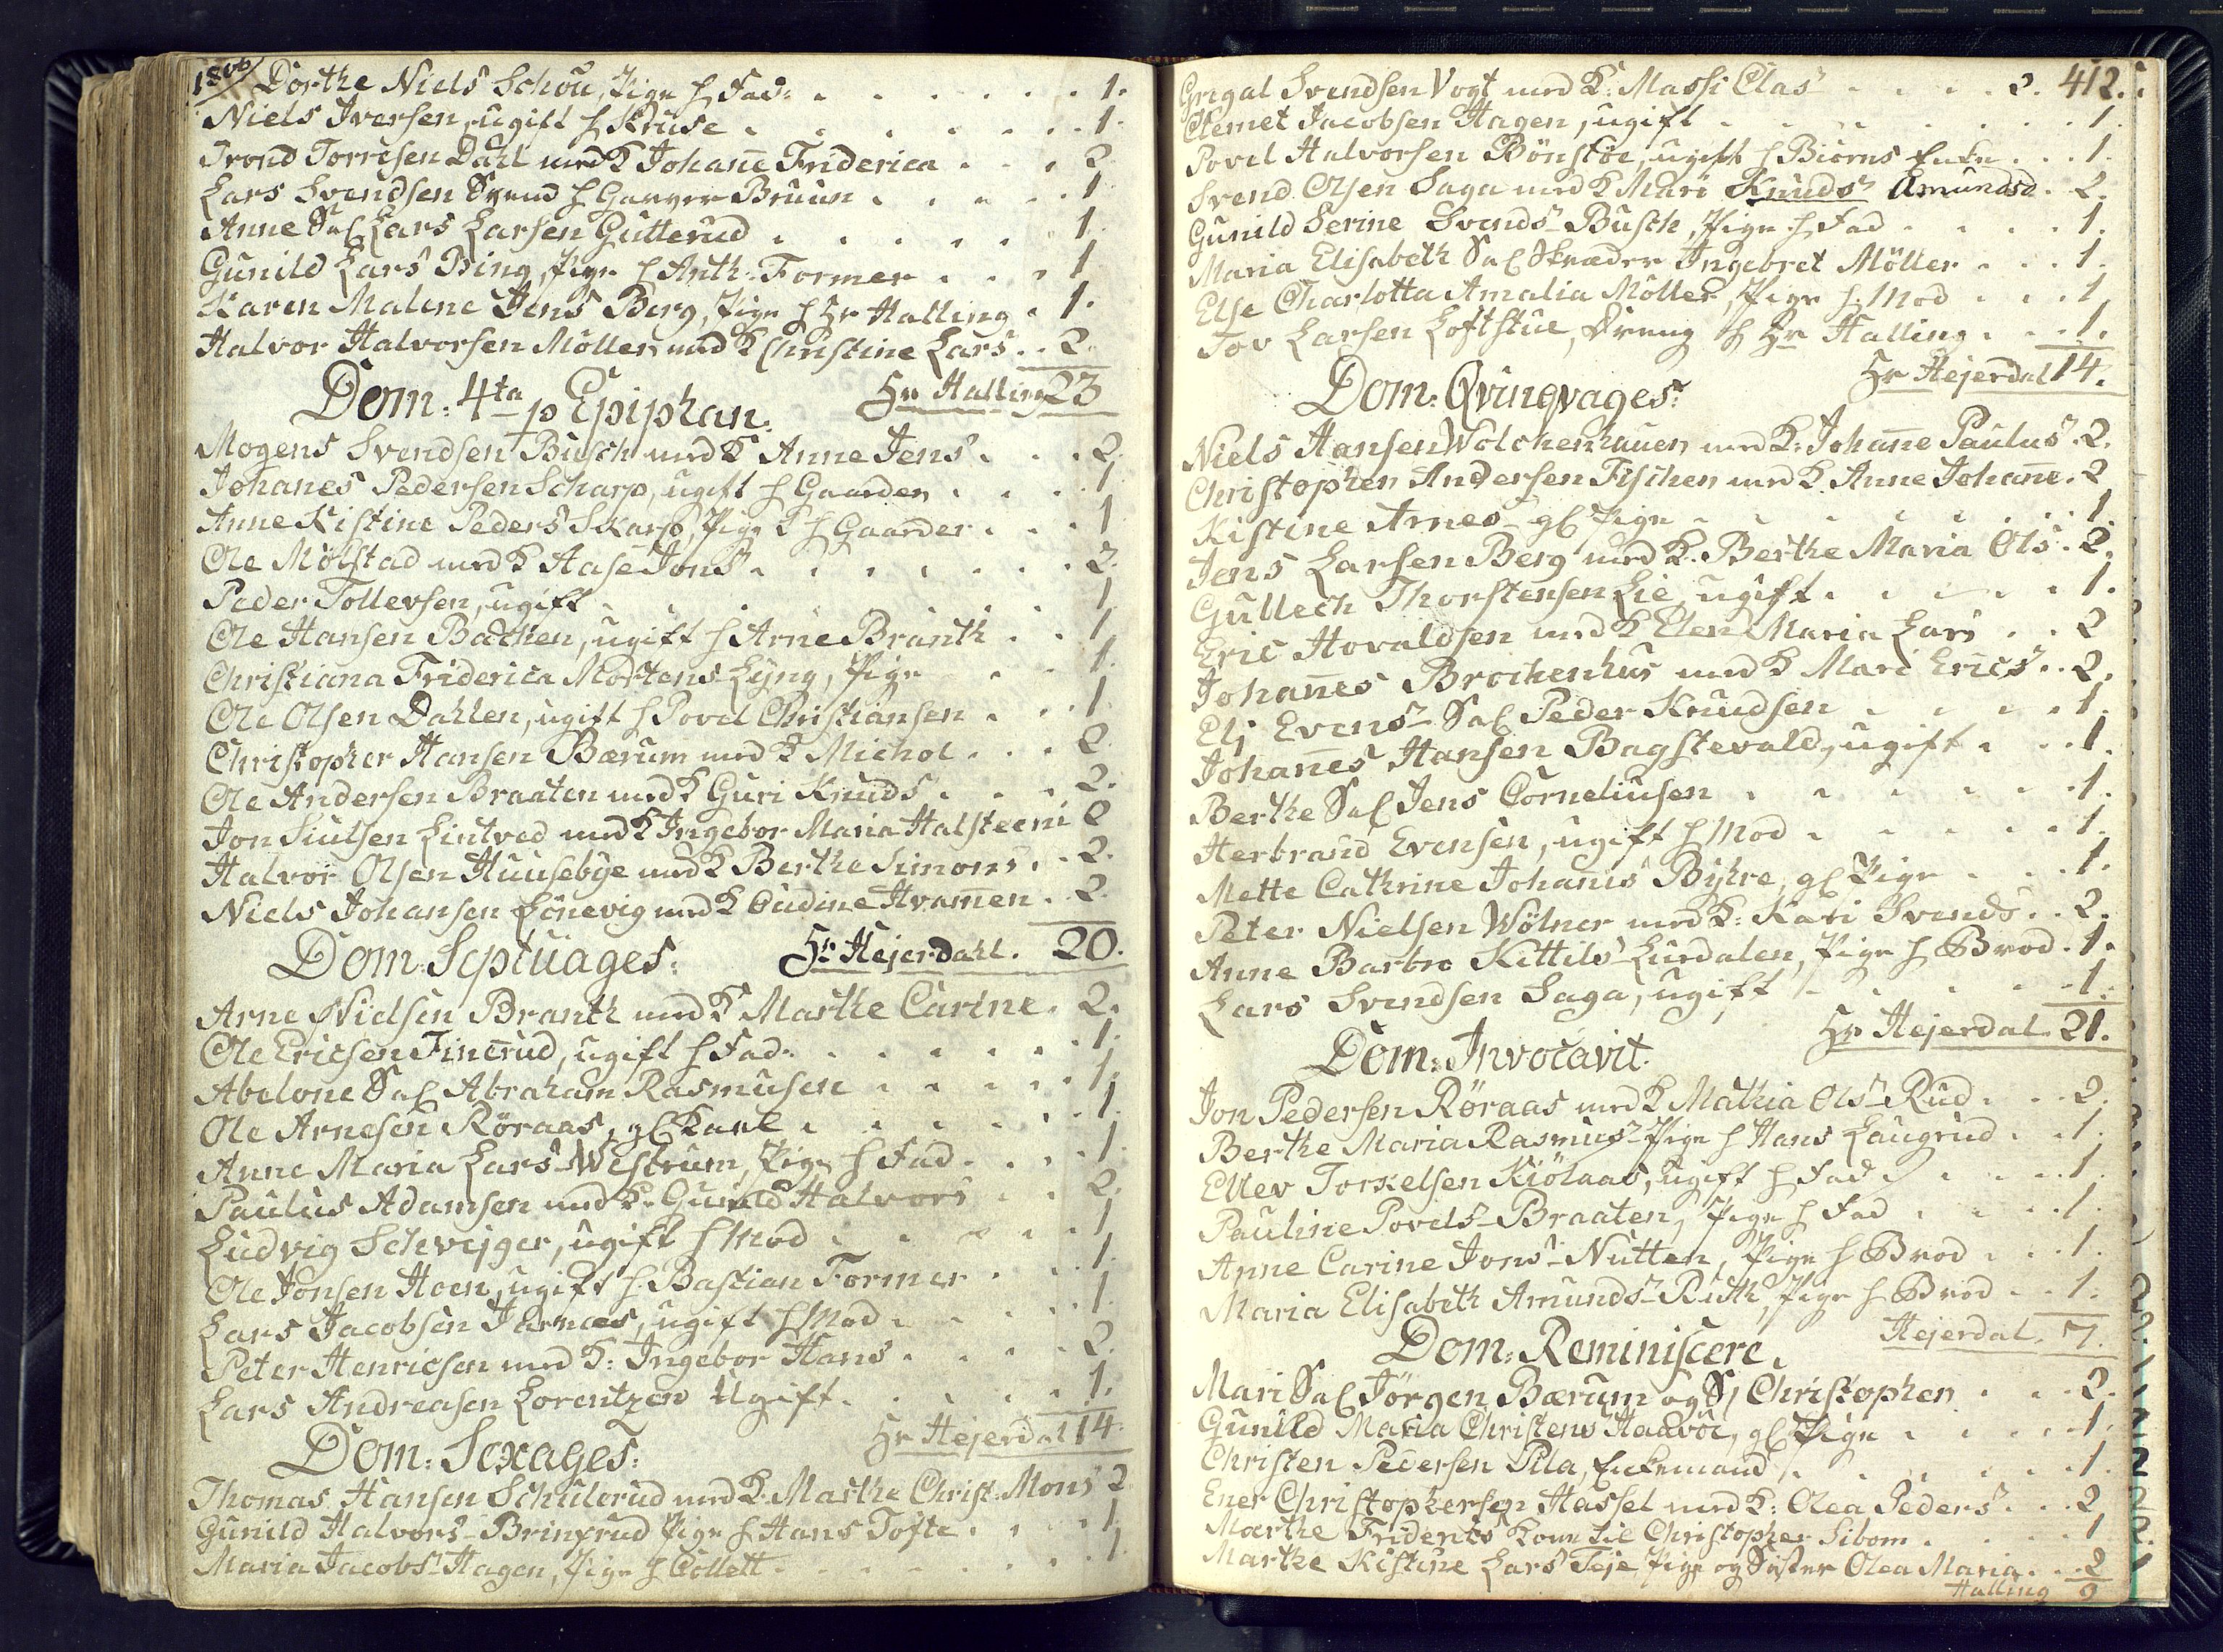 1806/ Dorthe Niels Schou, Pige h Fad: . . . . . . . 1.
Niels Iversen, ugift h Kruse . . . . . . . 1.
Trond Torrisen Dahl med K Johañe Friderica . . . 2
Lars Svendsen Svend h Garver Bruun . . . . . 1
Anne Sal Lars Larsen Gutterud . . . . . 1.
Gunild Lars Bing, Pige h Anth: Former . . . 1
Karen Malene Jens Berg, Pige h Hr Halling . 1.
Halvor Halvorsen Möller med K Christine Lars . . 2.
Dom: 4ta p Epiphan: Hr Halling 23
Mogens Svendsen Busch med K Anne Jens . . . 2.
Johanes Pedersen Scharp, ugift h Gaarder . . . . 1
Anne Kistine Peders Skarp, Pige h Gaarder . . . 1
Ole Mölstad med K Aase Jons . . . . . . . 2.
Peder Tollevsen, ugift . . . . . 1
Ole Hansen Bachen, ugift h Arne Branth . . 1
Christiana Friderica Mortens Lyng, Pige . . 1.
Ole Olsen Dahlen, ugift h Povel Christiansen . . . 1.
Christopher Hansen Bærum med K Michol . . . 2
Ole Andersen Braaten med K Guri Knuds . . . 2.
Jon Siulsen Lintved med K Ingebor Maria Halsteens 2
Halvor Olsen Huusebye med K Berthe Simons . . 2.
Niels Johansen Eönevig med K Gudine Hvamen . 2.
Dom: Septuages: Hr Hejerdahl. 20.
Arne Nielsen Branth med K Marthe Carine . 2.
Ole Ericsen Finerud, ugift h Fad: . . . . . 1.
Abelone Sal Abraham Rasmusen . . . . . 1.
Ole Arnesen Röraas, gl Karl . . . . . 1
Anne Maria Lars Westrum, Pige h Fad . . . . 1.
Paulus Adamsen med K: Gunild Halvors . . 2.
Ludvig Schvejger, ugift h Mod . . . . . 1
Ole Jonsen Hoen, ugift h Bastian Former . . . 1.
Lars Jacobsen Jarnæs, ugift h Mod . . . . . 1.
Peter Henricsen med K: Ingebor Hans . . . . 2.
Lars Andreasen Lorentzen Ugift . . . . . 1.
Dom: Sexages: Hr Hejerdal 14.
Thomas Hansen Schulerud med K Marthe Christ: Mons 2
Gunild Halvors Brinsrud Pige h Hans Tofte . . . . 1.
Maria Jacobs Hagen, Pige h Collett . . . . . . . 1.
412.
Gregal Svendsen Vogt med K: Massi Clas . . . . 2.
Clemet Jacobsen Hagen, ugift . . . . . . . . 1.
Povel Halvorsen Bönsköe, ugift h Biörns Enke . . . 1.
Svend Olsen Saga med K Mari Knuds Amundsd. 2.
Gunild Serine Svends Busch, Pige h Fad . . . . 1.
Maria Elisabeth Sal Skræder Ingebret Möller . . . 1.
Else Charlotta Amalia Möller, Pige h: Mod . . . 1.
Tov Larsen Loftstue, Dreng h Hr Halling . . . 1.
Dom: Qvinqvages: Hr Hejerdal 14.
Niels Hansen Wolchenhauer, med K: Johañe Paulus . 2.
Christopher Andersen Fischer med K Anne Johañe . 2
Kistine Arnes gl Pige . . . . . . . . 1
Jens Larsen Berg med K: Berthe Maria Ols . 2.
Gullech Thorstensen Lie, ugift . . . . . 1.
Eric Hovaldsen med K Elen Maria Lars . . 2
Johañes Brochenhus med K Mari Erics . . 2.
Eli Evens Sal Peder Knudsen . . . . . 1.
Johañes Hansen Bagstevald, ugift . . . 1.
Berthe Sal Jens Corneliusen . . . . . . 1.
Herbrand Evensen, ugift h Mod . . . . . 1.
Mette Cathrine Johanes Byhre, gl Pige . . . 1.
Peter Nielsen Wölner med K: Kari Svends . . 2.
Anne Barbro Kittils Lurdalen, Pige h Brod . 1.
Lars Svendsen Saga, ugift . . . . . 1.
Dom: Invocavit. Hr Hejerdal 21.
Jon Pedersen Röraas med K Mathia Ols Rud . . . 2.
Berthe Maria Rasmus Pige h Hans Laugrud . . 1.
Ellev Torkelsen Kiölaas, ugift h Fad . . . . . 1.
Pauline Povels Braaten, Pige h Fad . . . . 1.
Anne Carine Jons Nutten, Pige h Brod . . . 1.
Maria Elisabeth Amunds Ruth, Pige h Brod . . 1.
Dom: Reminiscere. Hejerdal. 7.
Mari Sal Jörgen Bærum og S Christopher . . . 2.
Gunild Maria Christens Haavoe, gl Pige . . . . . 1.
Christen Pedersen Pila, Enkemand . . . . . . 1.
Ener Christophersen Hassel med K: Olea Peders . . . 2
Marthe Fridents Kone til Christopher Sibom . . . . 1
Marthe Kistine Lars Teje, Pige og Söster Olea Maria . . . 2
Halling 9